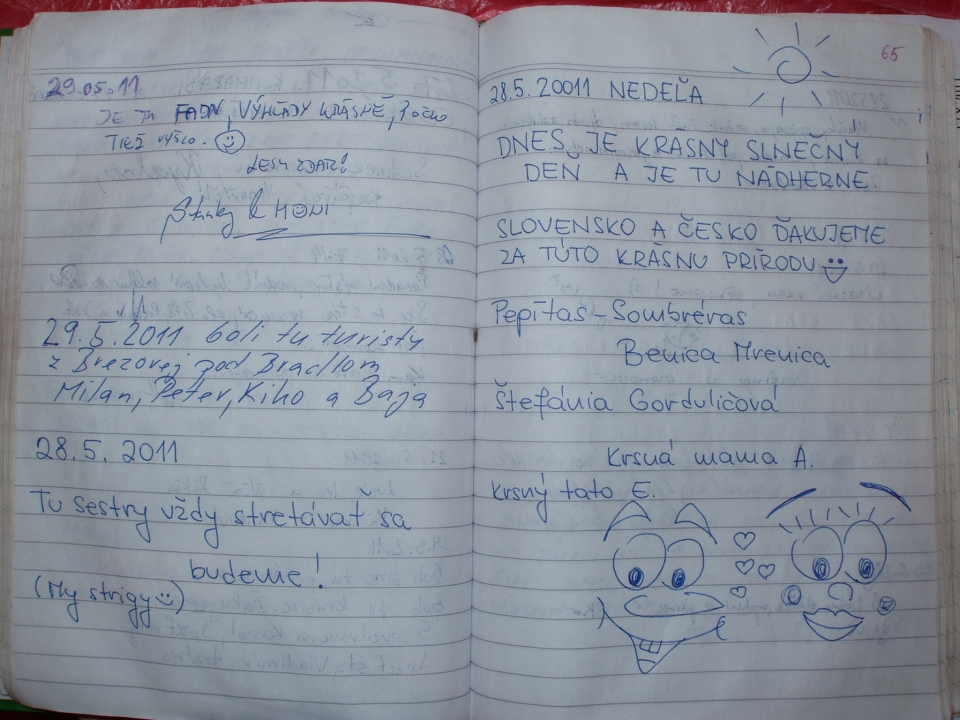 29.05.11
JE TU FAJN, VÝHĽADY KRÁSNÉ, POČKO
TIEŽ VYŠLO.
LESU ZDAR!
& MONI
29.5.2011 boli tu turisty
z Brezovej pod Bradlom
Milan, Peter, Kiho a Baja
28.5. 2011
Tu sestry vždy stretávať sa
budeme!
(My strigy)
65
28.5.20011 NEDEĽA
DNES JE KRÁSNY SLNEČNÝ
DEŇ A JE TU NÁDHERNE.
SLOVENSKO A ČESKO ĎAKUJEME
ZA TÚTO KRÁSNU PRÍRODU
Pepítas - Sombréras
Benica Mrenica
Štefánia Gorduličová
Krsná mama A.
Krsný tato E.